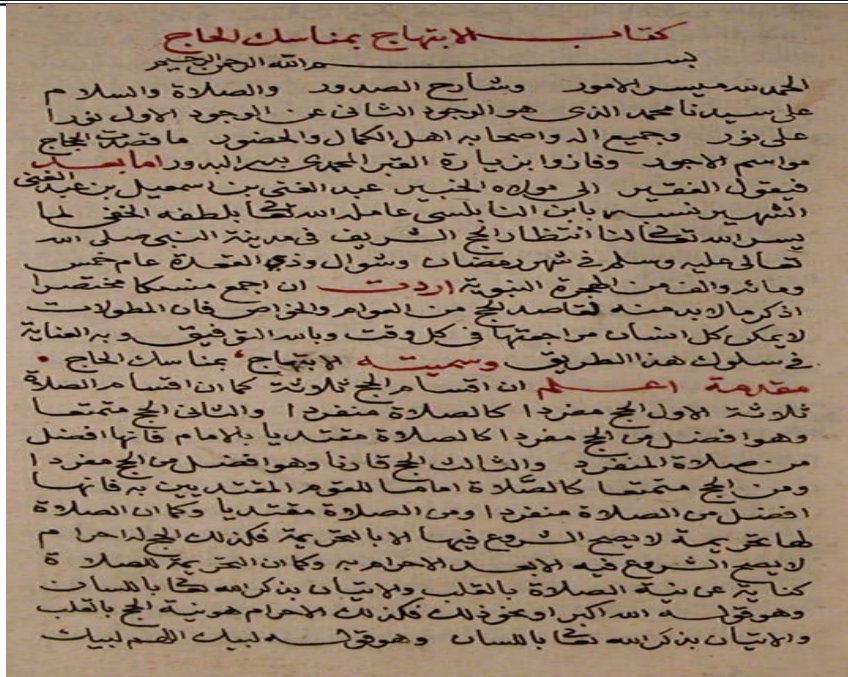 كتاب الابتهاج بمناسك الحاج
بسم الله الرحمن الرحيم
الحمد لله ميسر الامور وشارح الصدور والصلاة والسلام
على سيدنا محمد الذى هو الوجود الثانى عن الوجود الاول نورا
على نور وجميع اله واصحابه اهل الكمال والحضور ما قصدت الحجاج
مواسم الاجور وفازوا بزيارة القبر المحمدى بدر البدور اما بعد
فيقول الفقير الى مولاه الخبير عبد الغنى بن اسمعيل بن عبد الغنى
الشهير نسبه بابن النابلسى عامله الله تعا بلطفه الخفى لما
يسر الله تعا لنا انتظار الحج الشريف فى مدينة النبى صلى الله
تعالى عليه وسلم فى شهر رمضان وشوال وذى القعدة عام خمس
ومائة والف من الهجرة النبوية اردت ان اجمع منسكا مختصرا
اذكر ما لا بد منه لقاصد الحج من العوام والخواص فان المطولات
لا يمكن كل انسان مراجعتها فى كل وقت وبالله التوفيق وبه العناية
فى سلوك هذا الطريق وسميته الابتهاج بمناسك الحاج
مقدمة اعلم ان اقسام الحج ثلاثة كما ان اقسام الصلاة
ثلاثة الاول الحج مفردا كالصلاة منفردا والثانى الحج متمتعا
وهو افضل من الحج مفردا كالصلاة مقتديا بالامام فانها افضل
من صلاة المنفرد والثالث الحج قارنا وهو افضل من الحج مفردا
ومن الحج متمتعا كالصلاة اماما للقوم المقتديين به فانها
افضل من الصلاة منفردا ومن الصلاة مقتديا وكما ان الصلاة
لها تحريمة لا يصح الشروع فيها الا بالتحريمة فكذلك الحج له احرام
لا يصح الشروع فيه الا بعد الاحرام به وكما ان التحريمة للصلاة
كناية عن نية الصلاة بالقلب والاتيان بذكر الله تعا باللسان
وهو قوله الله اكبر او نحو ذلك فكذلك الاحرام هو نية الحج بالقلب
والاتيان بذكر الله تعا باللسان وهو قوله لبيك اللهم لبيك